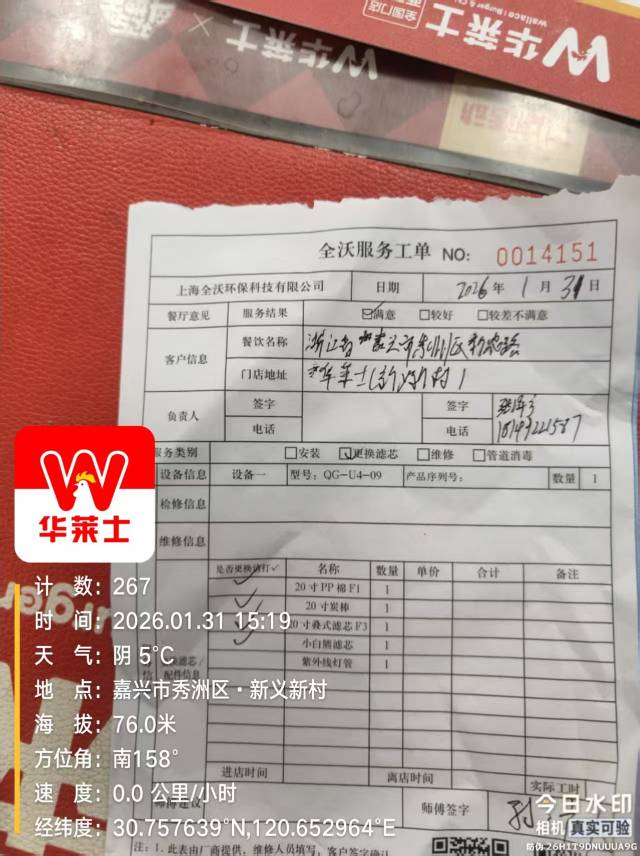 华莱士
全国门店
wallace | Burger &
华莱士
全沃服务工单 NO: 0014151
上海全沃环保科技有限公司 日期 2026年1月31日
餐厅意见 服务结果 ☑满意 □较好 □较差不满意
客户信息 餐饮名称 浙江省嘉兴市秀洲区
门店地址 华莱士(新义新村)
负责人 签字 签字
电话 电话
服务类别 □安装 ☑更换滤芯 □维修 □管道消毒
设备信息 设备一 型号: QG-U4-09 产品序列号: 数量 1
检修信息
维修信息
是否更换请打✓ 名称 数量 单价 合计 备注
✓ 20寸PP棉F1 1
✓ 20寸炭棒 1
✓ 20寸叠式滤芯F3 1
小白熊滤芯 1
紫外线灯管 1
换滤芯/
配件信息
进店时间 离店时间 实际工时
师傅建议 师傅签字
1、此表由厂商提供、维修人员填写、客户签字确认
华莱士
计 数: 267
时 间: 2026.01.31 15:19
天 气: 阴 5℃
地 点: 嘉兴市秀洲区·新义新村
海 拔: 76.0米
方位角: 南158°
速 度: 0.0 公里/小时
经纬度: 30.757639°N,120.652964°E
今日水印
相机 真实可验
防伪 26H1T9DNUUUA9G